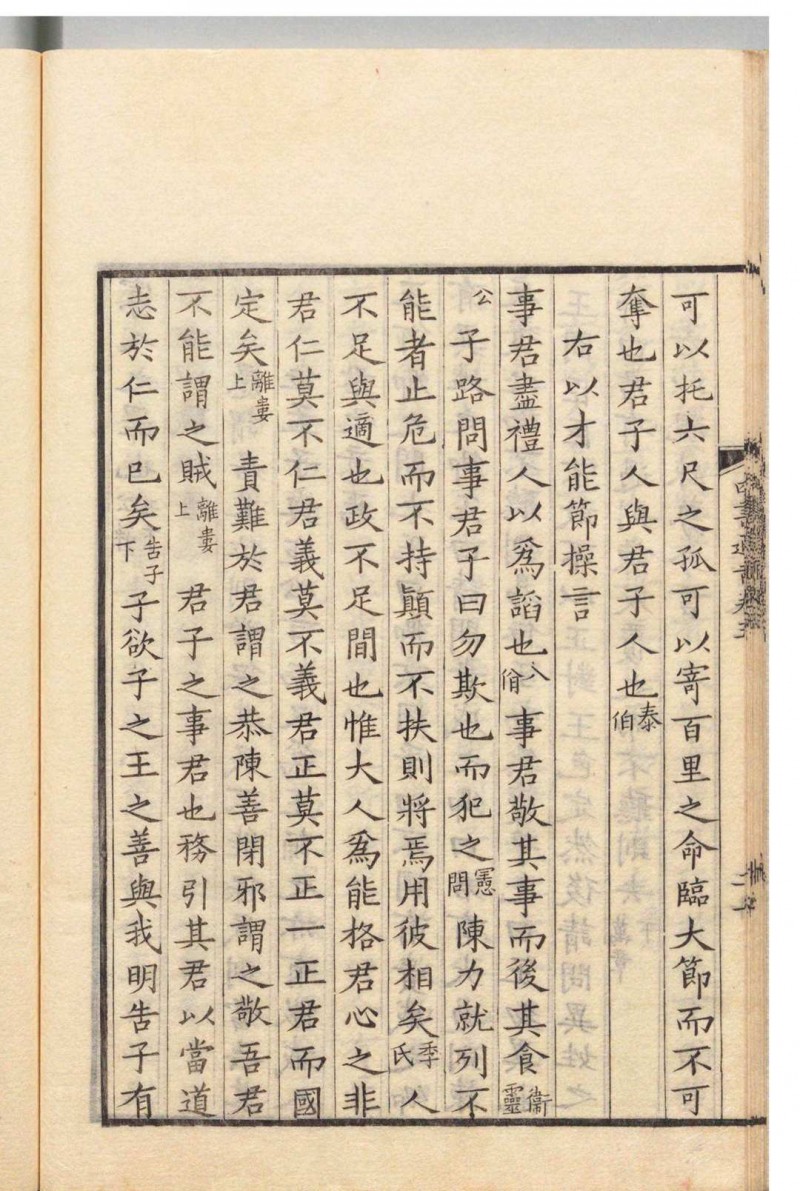 可以托六尺之孤可以寄百里之命臨大節而不可
奪也君子人與君子人也泰伯
右以才能節操言
事君盡禮人以爲謟也八佾 事君敬其事而後其食衞靈
公 子路問事君子曰勿欺也而犯之憲問 陳力就列不
能者止危而不持顚而不扶則將焉用彼相矣季氏 人
不足與適也政不足間也惟大人爲能格君心之非
君仁莫不仁君義莫不義君正莫不正一正君而國
定矣離婁上 責難於君謂之恭陳善閉邪謂之敬吾君
不能謂之賊離婁上 君子之事君也務引其君以當道
志於仁而已矣告子下 子欲子之王之善與我明告子有